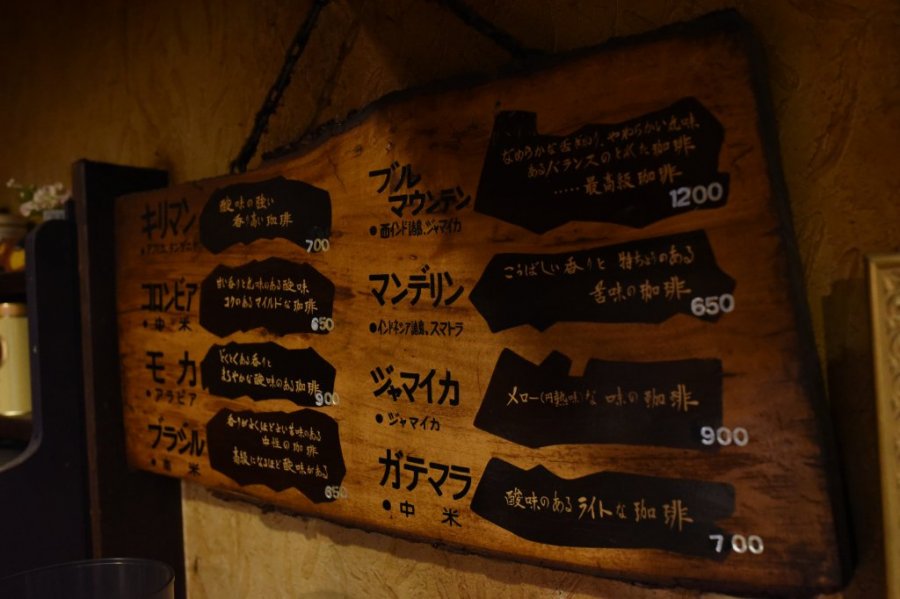 キリマン
酸味の強い
香り高い珈琲
700
コロンビア
●中米
甘い香りと丸味のある酸味
コクのあるマイルドな珈琲
650
モカ
●アラビア
どくとくある香りと
まろやかな酸味のある珈琲
900
ブラジル
●南米
香りがよくほどよい苦味のある
中性の珈琲
高級になるほど酸味がある
650
ブル
マウンテン
●西インド諸島、ジャマイカ
なめらかな舌ざわり、やわらかい丸味
あるバランスのとれた珈琲
.....最高級珈琲
1200
マンデリン
●インドネシア諸島、スマトラ
こうばしい香りと 特ちょうのある
苦味の珈琲
650
ジャマイカ
●ジャマイカ
メロー(円熟味)な 味の珈琲
900
ガテマラ
●中米
酸味のあるライトな珈琲
700